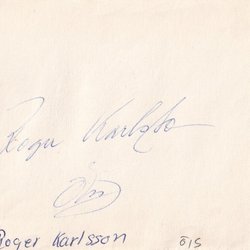 Roger Karlsson
Öis
Roger Karlsson ÖIS